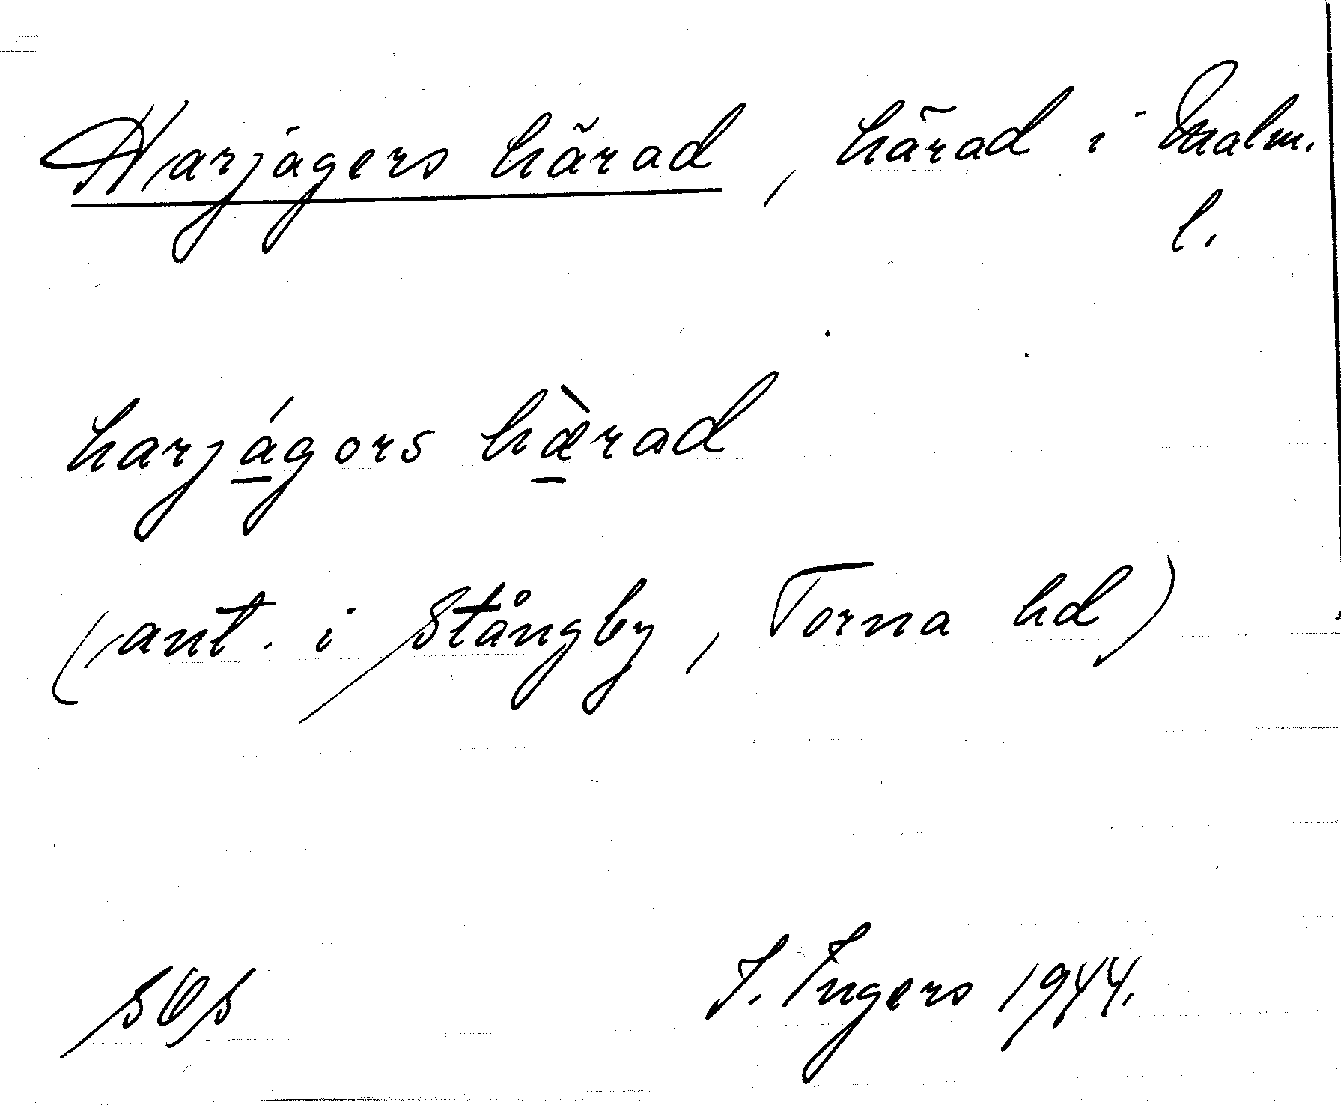 Harjagers härad, härad i Malm.
l.
harjágors hæ̀rad
(ant. i Stångby, Torna hd)
I. Ingers 1944.